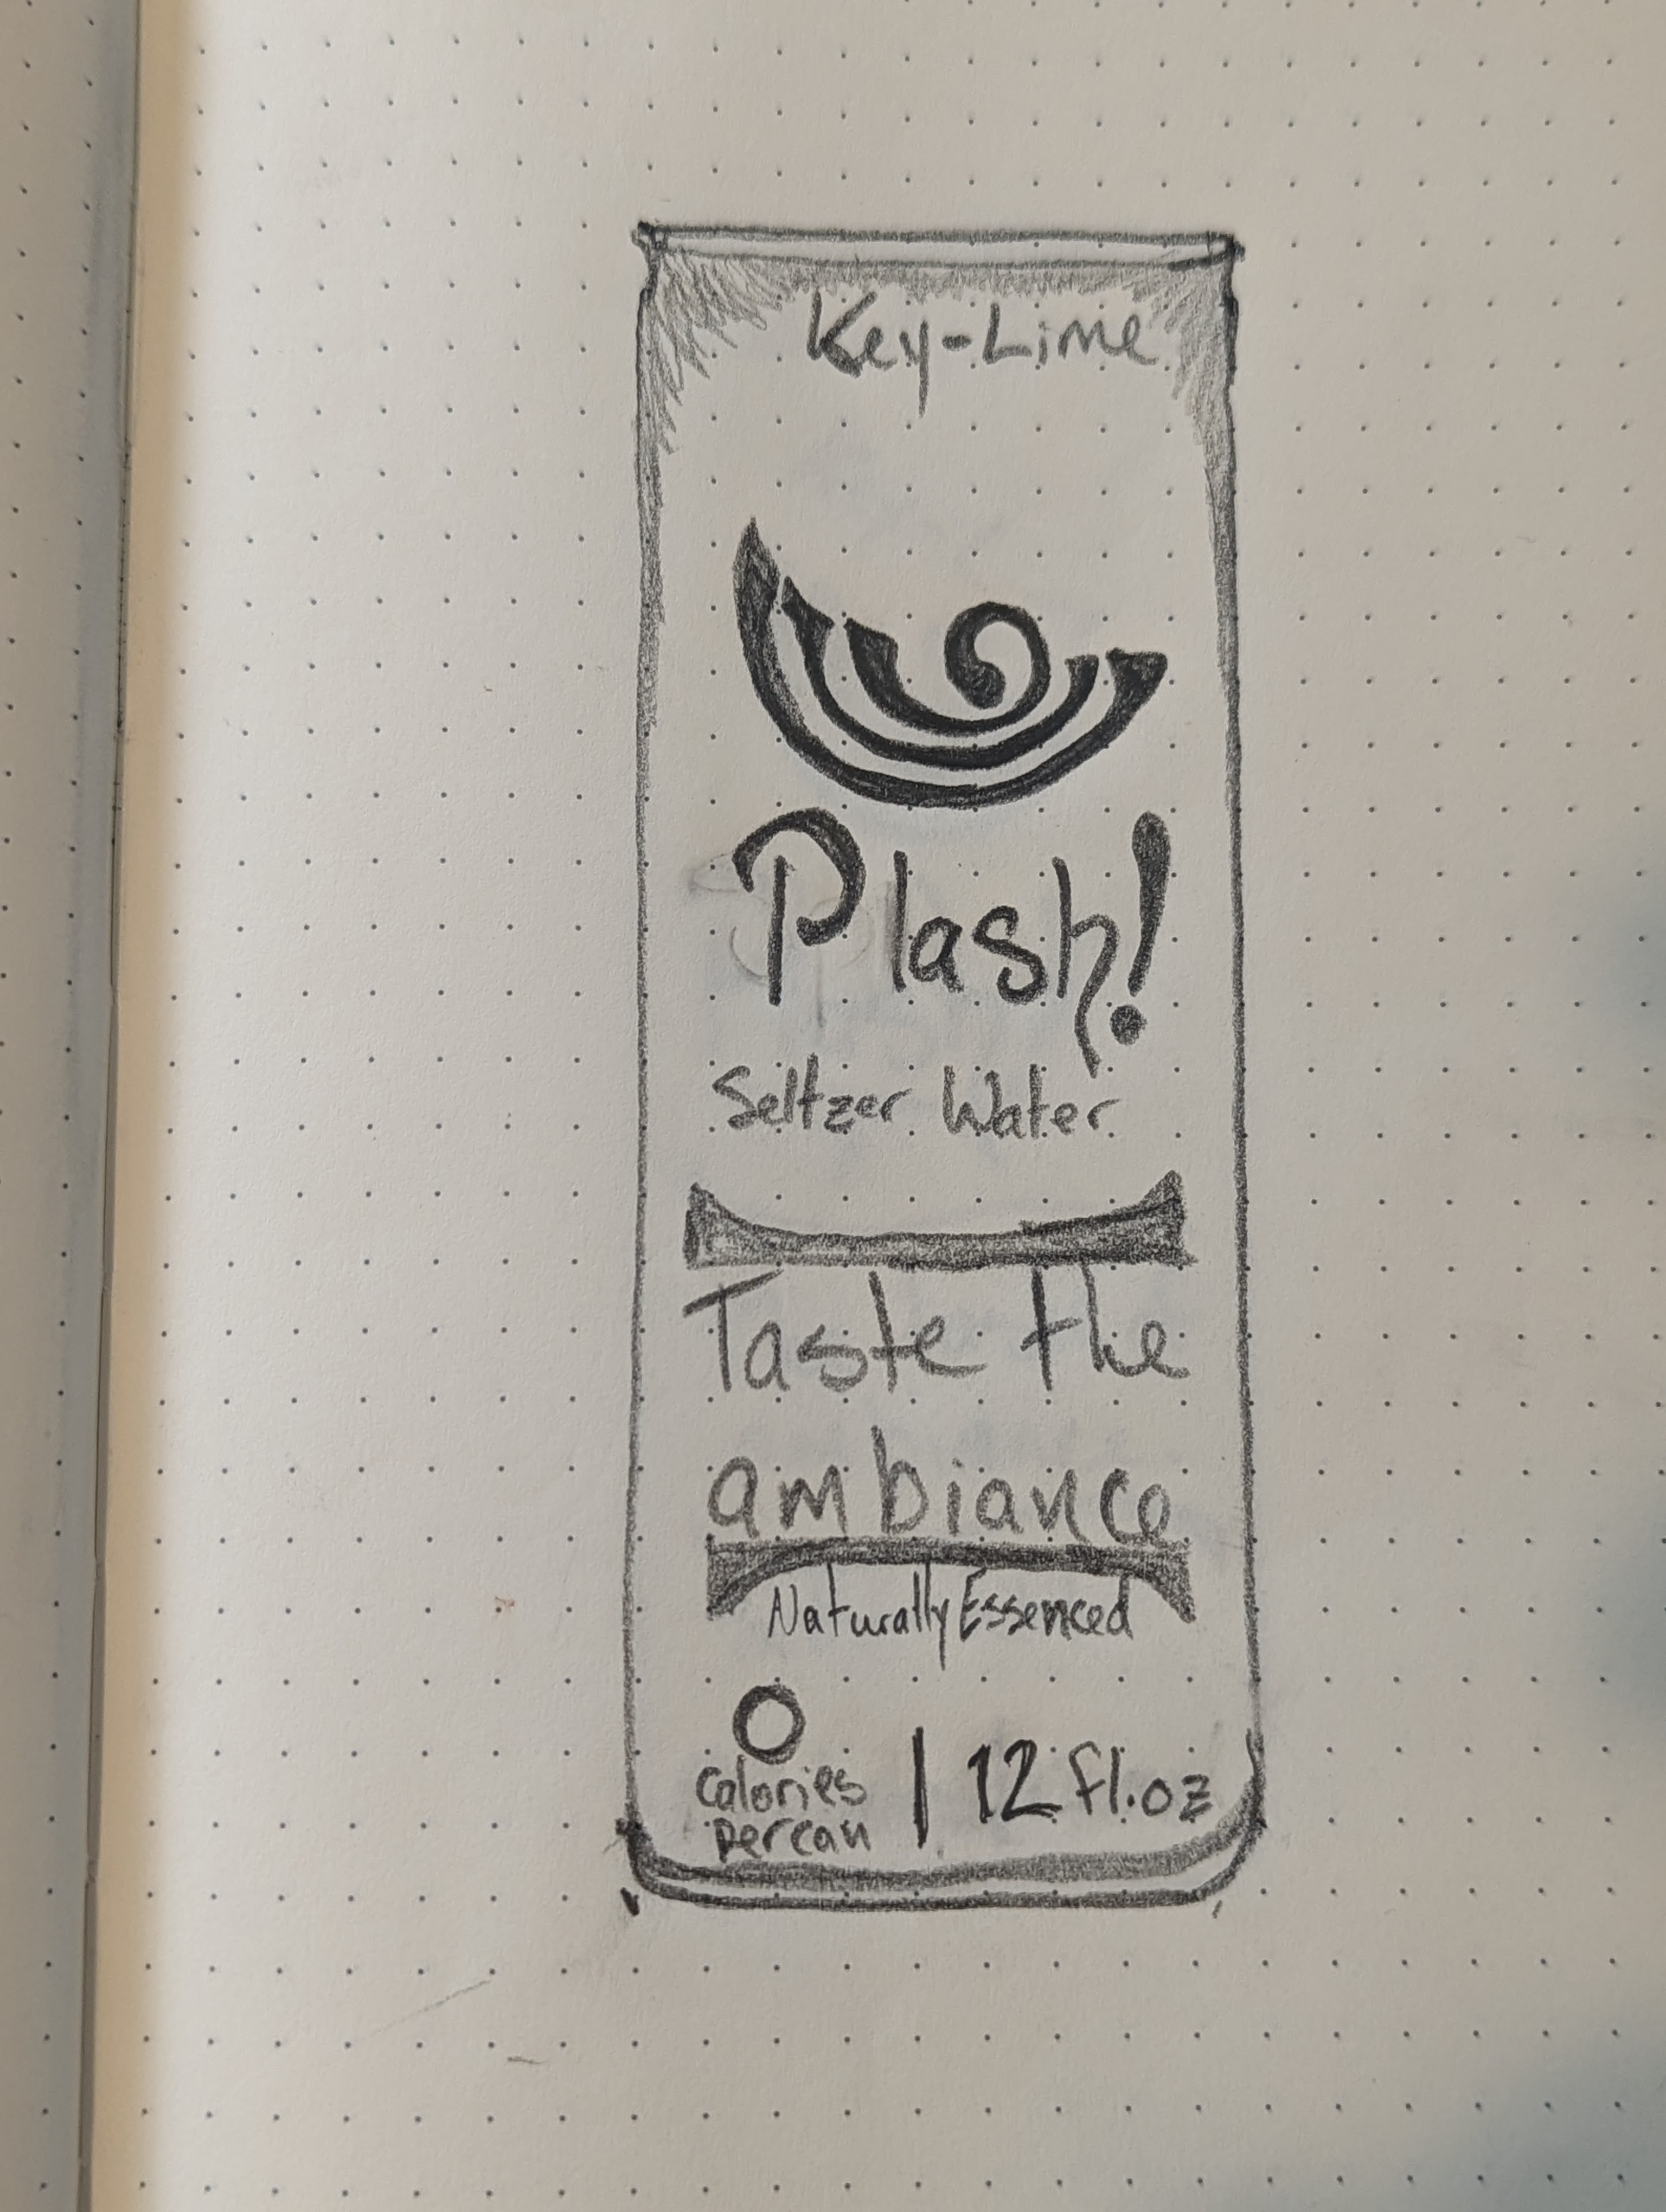 Key-Lime
Plash!
Seltzer Water
Taste the
ambiance
Naturally Essenced
0
Calories
per can
12 fl.oz